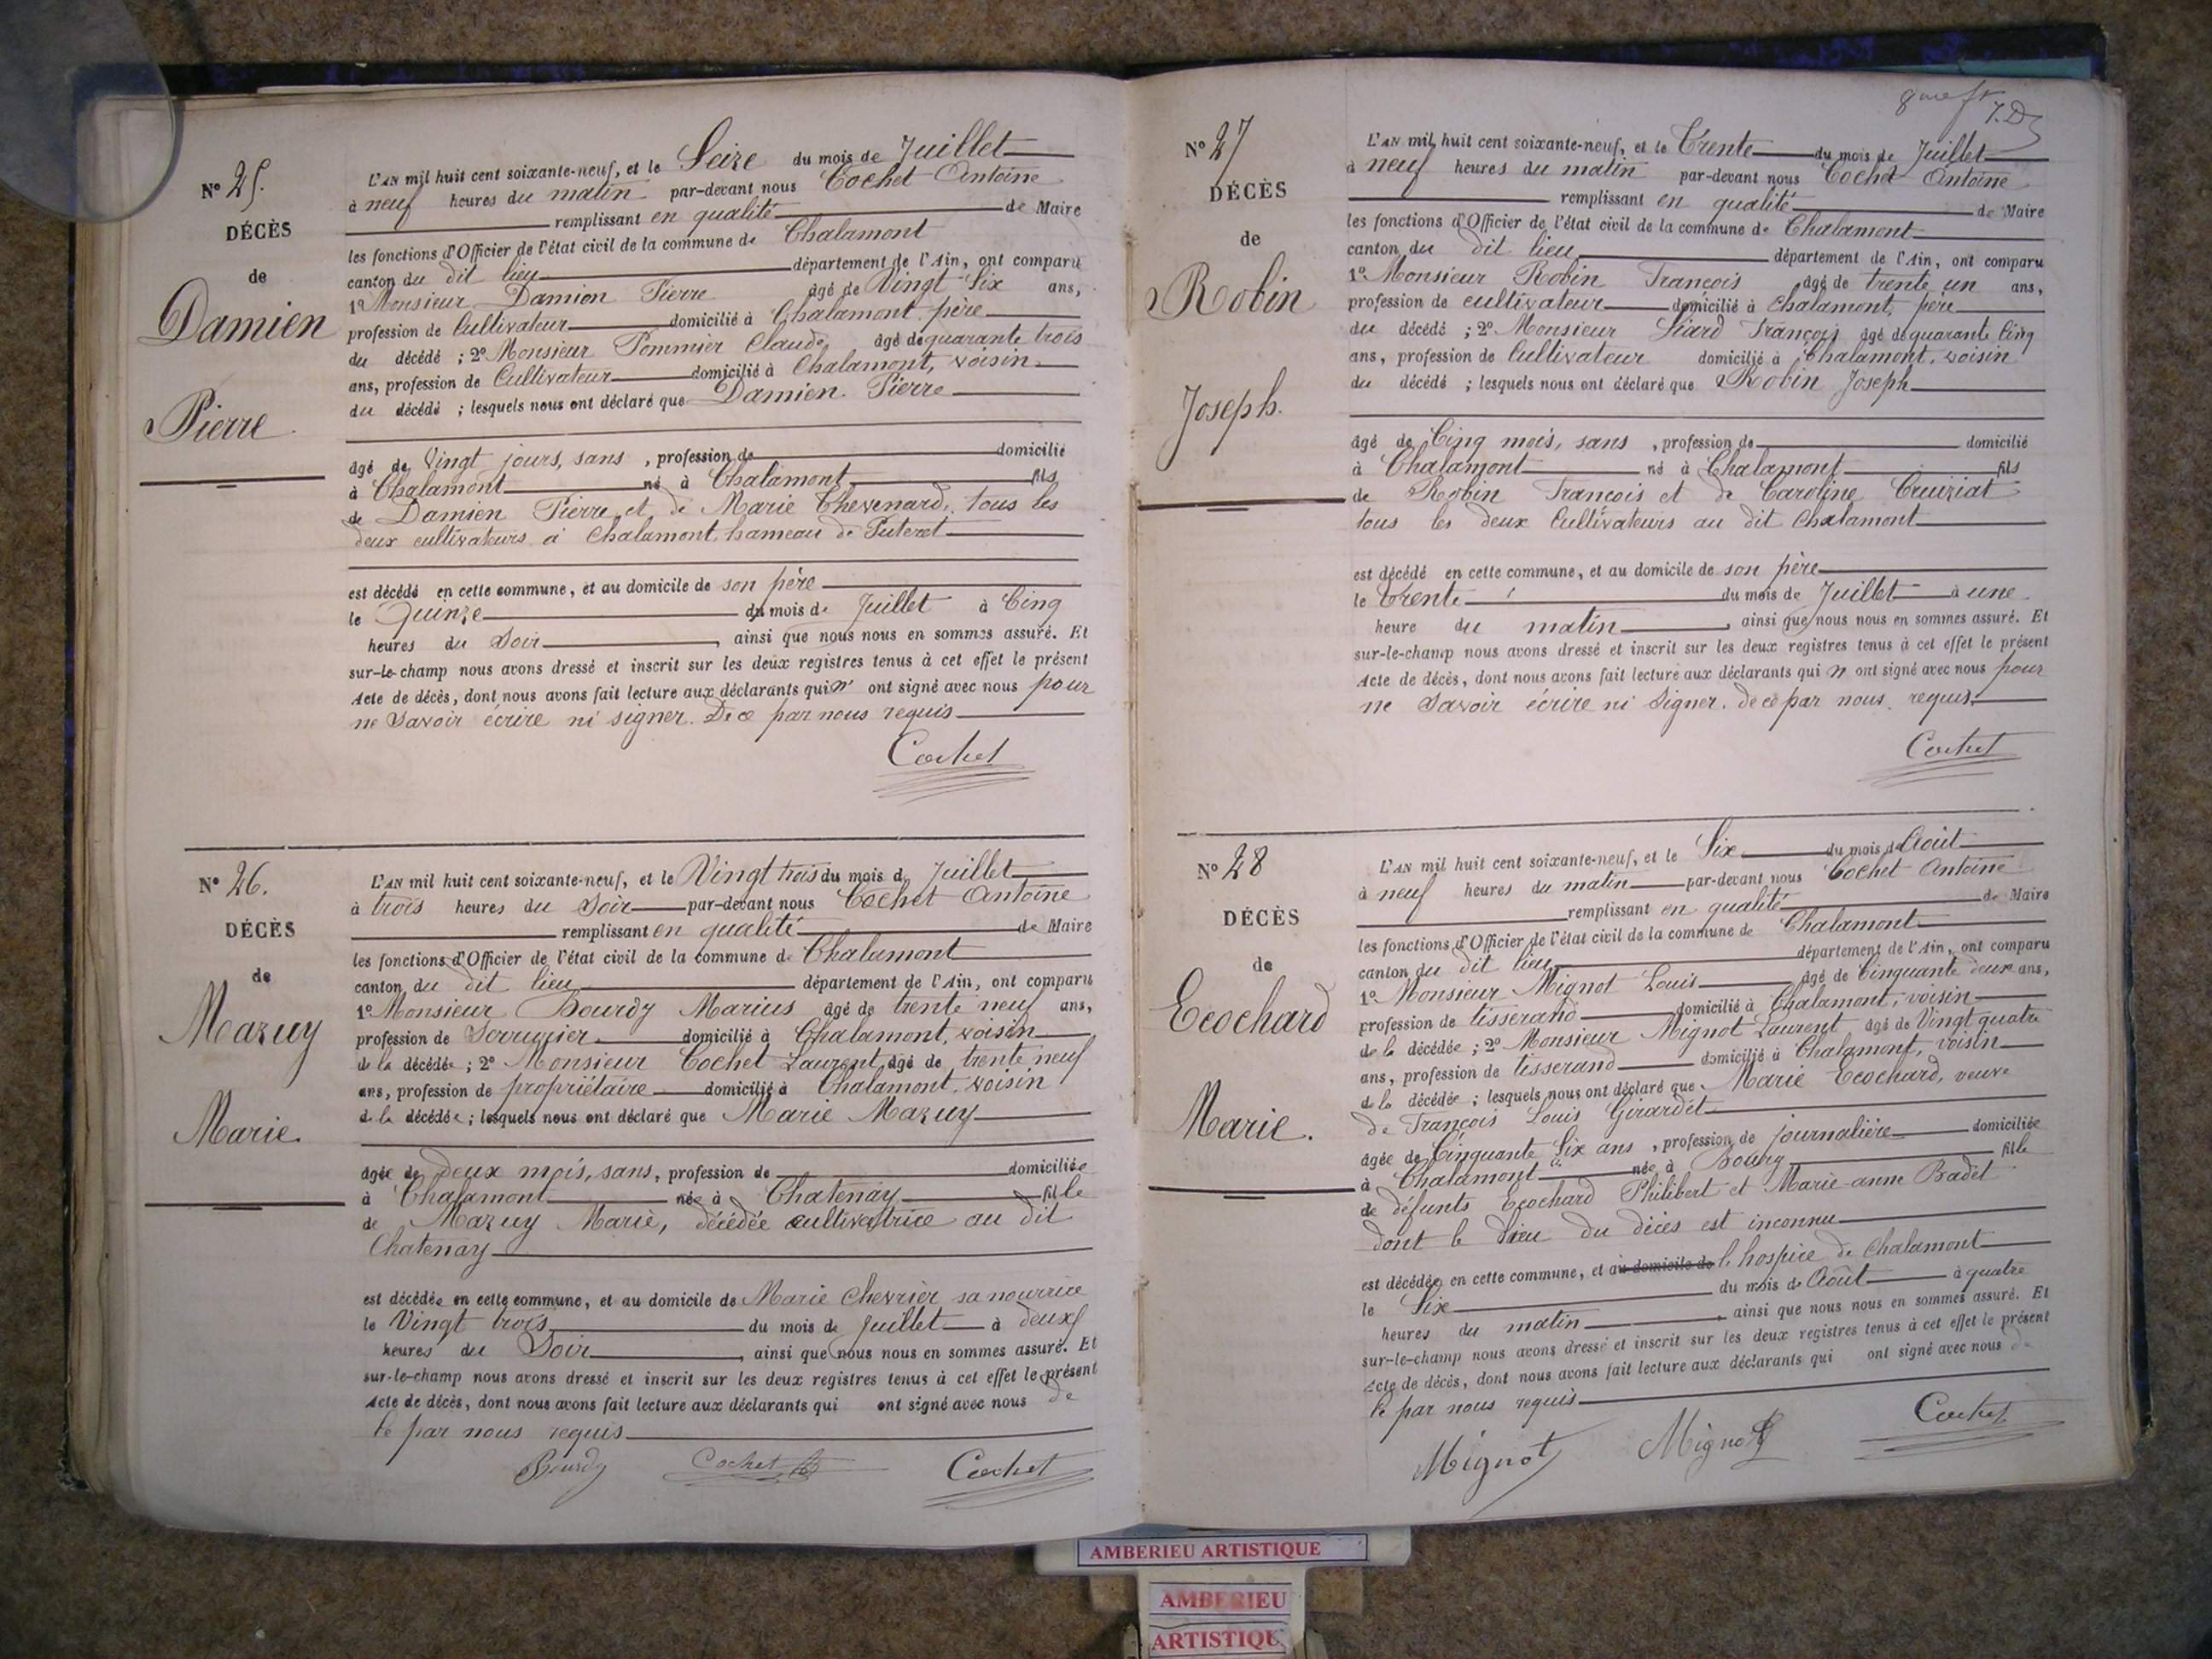 N° 25.
DÉCÈS
de
Damien
Pierre
L'AN mil huit cent soixante-neuf, et le Seize du mois de Juillet
à neuf heures du matin par-devant nous Cochet Antoine
remplissant en qualité de Maire
les fonctions d'Officier de l'état civil de la commune de Chalamont
canton du dit lieu département de l'Ain, ont comparu
1° Monsieur Damien Pierre âgé de Vingt Six ans,
profession de Cultivateur domicilié à Chalamont, père
du décédé ; 2° Monsieur Pommier Claude, âgé de quarante trois
ans, profession de Cultivateur domicilié à Chalamont, voisin
du décédé ; lesquels nous ont déclaré que Damien Pierre
âgé de Vingt jours, sans , profession de domicilié
à Chalamont né à Chalamont fils
de Damien Pierre et de Marie Thevenard, tous les
deux cultivateurs à Chalamont, hameau de
est décédé en cette commune, et au domicile de son père
le Quinze du mois de Juillet à Cinq
heures du Soir , ainsi que nous nous en sommes assuré. Et
sur-le-champ nous avons dressé et inscrit sur les deux registres tenus à cet effet le présent
Acte de décès, dont nous avons fait lecture aux déclarants qui n' ont signé avec nous pour
ne Savoir écrire ni signer. De ce par nous requis
Cochet
N° 26.
DÉCÈS
de
Mazuy
Marie.
L'AN mil huit cent soixante-neuf, et le Vingt trois du mois de Juillet
à trois heures du Soir par-devant nous Cochet Antoine
remplissant en qualité de Maire
les fonctions d'Officier de l'état civil de la commune de Chalamont
canton du dit lieu département de l'Ain, ont comparu
1° Monsieur Bourdy Marius âgé de trente neuf ans,
profession de Serrurier domicilié à Chalamont, voisin
de la décédée ; 2° Monsieur Cochet Laurent, âgé de trente neuf
ans, profession de propriétaire domicilié à Chalamont, voisin
de la décédée ; lesquels nous ont déclaré que Marie Mazuy
âgée de deux mois, sans , profession de domiciliée
à Chalamont née à Chatenay fille
de Mazuy Marie, décédée cultivatrice au dit
Chatenay
est décédée en cette commune, et au domicile de Marie Chevrier sa nourrice
le Vingt trois du mois de Juillet à deux
heures du Soir , ainsi que nous nous en sommes assuré. Et
sur-le-champ nous avons dressé et inscrit sur les deux registres tenus à cet effet le présent
Acte de décès, dont nous avons fait lecture aux déclarants qui ont signé avec nous de
ce par nous requis
Bourdy Cochet Cochet
J.D
N° 27
DÉCÈS
de
Robin
Joseph.
L'AN mil huit cent soixante-neuf, et le Trente du mois de Juillet
à neuf heures du matin par-devant nous Cochet Antoine
remplissant en qualité de Maire
les fonctions d'Officier de l'état civil de la commune de Chalamont
canton du dit lieu, département de l'Ain, ont comparu
1° Monsieur Robin François âgé de trente un ans,
profession de cultivateur domicilié à Chalamont, père
du décédé ; 2° Monsieur François âgé de quarante Cinq
ans, profession de Cultivateur domicilié à Chalamont, voisin
du décédé ; lesquels nous ont déclaré que Robin Joseph
âgé de Cinq mois, sans , profession de domicilié
à Chalamont né à Chalamont fils
de Robin François et de Caroline Cruiziat
tous les deux Cultivateurs au dit Chalamont
est décédé en cette commune, et au domicile de son père
le Trente du mois de Juillet à une
heure du matin , ainsi que nous nous en sommes assuré. Et
sur-le-champ nous avons dressé et inscrit sur les deux registres tenus à cet effet le présent
Acte de décès, dont nous avons fait lecture aux déclarants qui n' ont signé avec nous pour
ne Savoir écrire ni Signer. de ce par nous requis
Cochet
N° 28
DÉCÈS
de
Ecochard
Marie.
L'AN mil huit cent soixante-neuf, et le Six du mois de Août
à neuf heures du matin par-devant nous Cochet Antoine
remplissant en qualité de Maire
les fonctions d'Officier de l'état civil de la commune de Chalamont
canton du dit lieu département de l'Ain, ont comparu
1° Monsieur Mignot Louis âgé de Cinquante deux ans,
profession de tisserand domicilié à Chalamont, voisin
de la décédée ; 2° Monsieur Mignot Laurent âgé de Vingt quatre
ans, profession de tisserand domicilié à Chalamont, voisin
de la décédée ; lesquels nous ont déclaré que Marie Ecochard, veuve
de François Louis Girardet
âgée de Cinquante Six ans , profession de journalière domiciliée
à Chalamont née à Bourg fille
de défunts Ecochard Philibert et Marie-anne Badet
dont le Lieu du décès est inconnu
est décédée en cette commune, et au domicile de l'hospice de Chalamont
le Six du mois de Août à quatre
heures du matin , ainsi que nous nous en sommes assuré. Et
sur-le-champ nous avons dressé et inscrit sur les deux registres tenus à cet effet le présent
Acte de décès, dont nous avons fait lecture aux déclarants qui ont signé avec nous de
ce par nous requis
Mignot Mignot Cochet
AMBERIEU ARTISTIQUE
AMBERIEU
ARTISTIQU